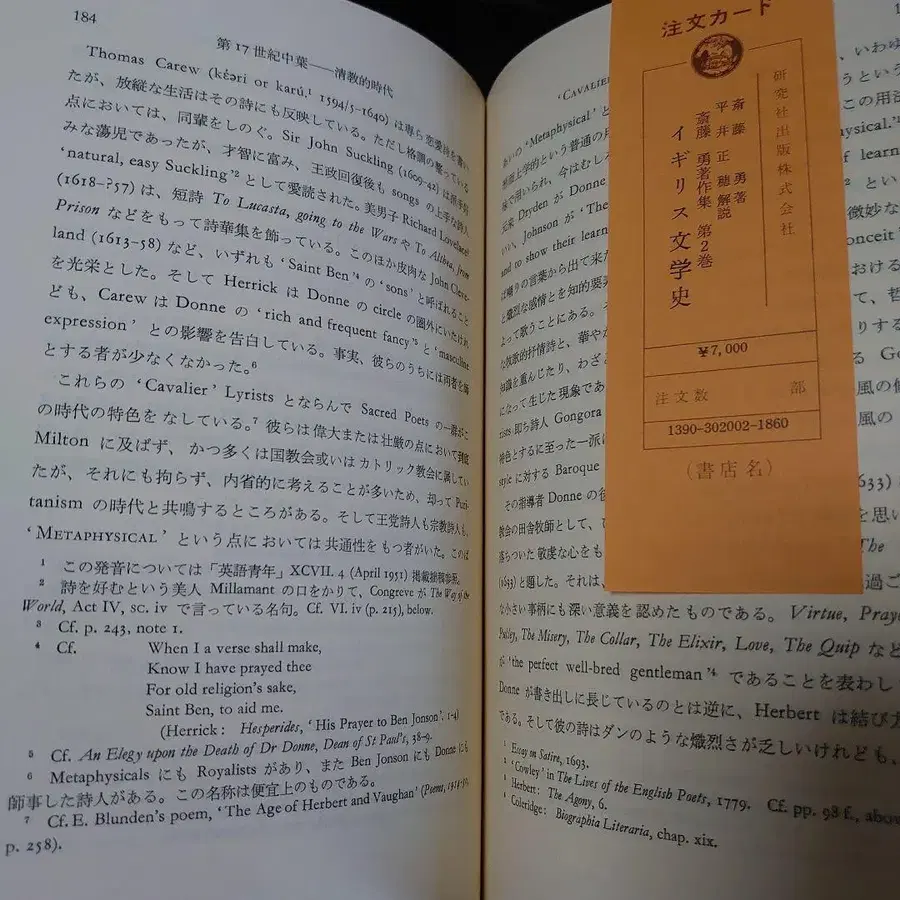 184
第17世紀中葉——清教的時代
Thomas Carew (kéəri or karú.¹ 1594/5–1640) は専ら恋愛詩を書い
たが、放縦な生活はその詩にも反映している。ただし格調の整っている
点においては、同輩をしのぐ。Sir John Suckling (1609–42) は
みな蕩児であったが、才智に富み、王政回復後も songs の上手な詩人
‘natural, easy Suckling’² として愛読された。美男子 Richard Lovelace³
(1618–?57) は、短詩 To Lucasta, going to the Wars や To Althea, from
Prison などをもって詩華集を飾っている。このほか皮肉な John Cleve-
land (1613–58) など、いずれも ‘Saint Ben’⁴ の ‘sons’ と呼ばれること
を光栄とした。そして Herrick は Donne の circle の圏外にいたけれ
ども、Carew は Donne の ‘rich and frequent fancy’⁵ と ‘masculine
expression’ との影響を告白している。事実、彼らのうちには両者を師
とする者が少なくなかった。⁶
これらの ‘Cavalier’ Lyrists とならんで Sacred Poets の一群がこ
の時代の特色をなしている。⁷ 彼らは偉大または壮厳の点において到底
Milton に及ばず、かつ多くは国教会或いはカトリック教会に属してい
たが、それにも拘らず、内省的に考えることが多いため、却って Puri-
tanism の時代と共鳴するところがある。そして王党詩人も宗教詩人も、
‘METAPHYSICAL’ という点においては共通性をもつ者がいた。このば
¹ この発音については「英語青年」XCVII. 4 (April 1951) 掲載拙稿参照。
² 詩を好むという美人 Millamant の口をかりて、Congreve が The Way of the
World, Act IV, sc. iv で言っている名句。Cf. VI. iv (p. 215), below.
³ Cf. p. 243, note 1.
⁴ Cf. When I a verse shall make,
Know I have prayed thee
For old religion's sake,
Saint Ben, to aid me.
(Herrick: Hesperides, ‘His Prayer to Ben Jonson’. 1-4)
⁵ Cf. An Elegy upon the Death of Dr Donne, Dean of St Paul's, 38-9.
⁶ Metaphysicals にも Royalists があり、また Ben Jonson にも Donne にも
師事した詩人がある。この名称は便宜上のものである。
⁷ Cf. E. Blunden's poem, ‘The Age of Herbert and Vaughan’ (Poems, 1914-30,
p. 258).
‘CAVALIER
あいの ‘Metaphysical’ と
形而上学的という普通の用
味で用いられ、今はむしろ
元来 Dryden が Donne
いい、Johnson が ‘The
and to show their learn
ば嘲りの言葉から出て来た
と熾烈な感情とを知的要素
よって歌うことにある。
な牧歌的抒情詩と、華やか
知識を重んじたり、わざと
になって生じた現象であ
rists 即ち詩人 Gongora
特色とするに至った一派に
style に対する Baroque
その指導者 Donne の後
教会の田舎牧師として、ひ
落ちついた敬虔な心をも
(1633) と題した。それは、
な小さい事柄にも深い意義を認めたものである。Virtue, Praye
Pulley, The Misery, The Collar, The Elixir, Love, The Quip など
が ‘the perfect well-bred gentleman’⁴ であることを表わし
Donne が書き出しに長じているのとは逆に、Herbert は結び方
である。そして彼の詩はダンのような熾烈さが乏しいけれども、
¹ Essay on Satire, 1693.
² ‘Cowley’ in The Lives of the English Poets, 1779. Cf. pp. 98 f., above
³ Herbert: The Agony, 6.
⁴ Coleridge: Biographia Literaria, chap. xix.
、いわゆ
うという
この用法
ysical.’¹
of learn
² とい
微妙な
onceit’
おける
て、哲
りする
る Go
風の
風の
633) と
を思い
The
過ご
注文カード
研究社出版株式会社
斎藤勇著
平井正穂解説
斎藤勇著作集 第2巻
イギリス文学史
¥7,000
注文数 部
1390-302002-1860
(書店名)